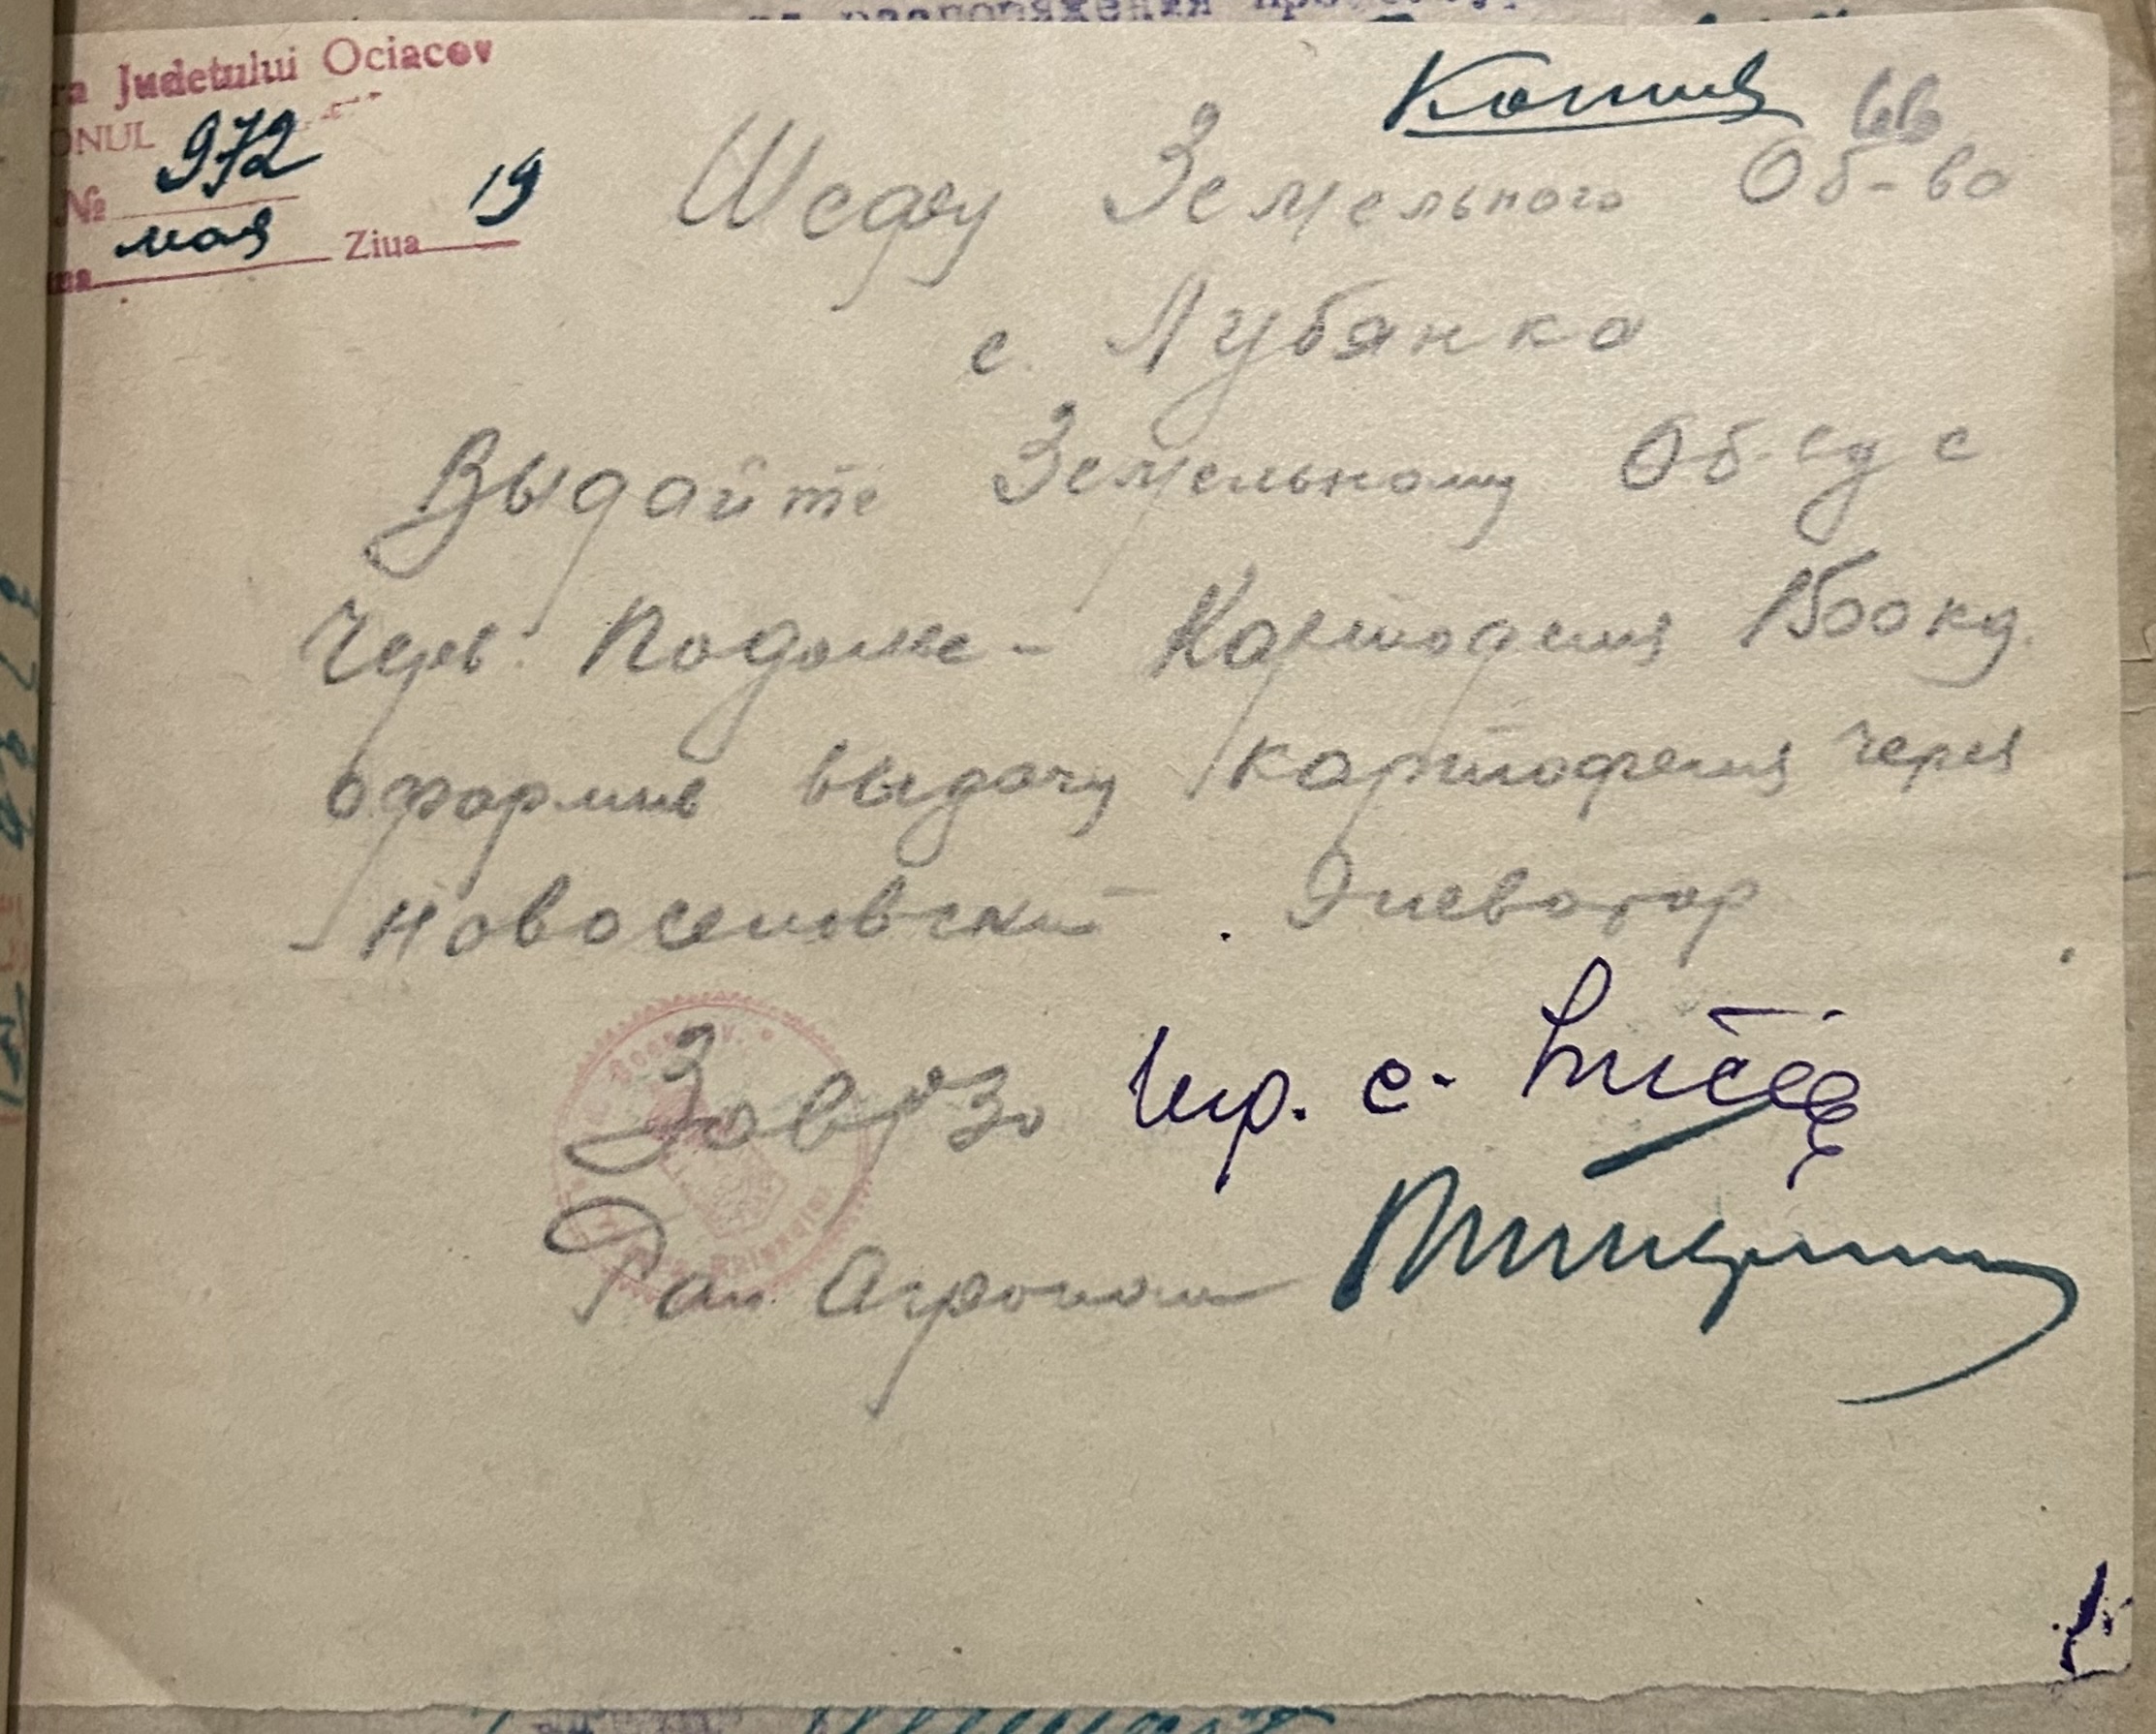 распоряжения
Judetului Ociacov
ONUL
№ 972
мая Ziua 19
Копия
66
Шефу Земельного Об-ва
с. Лубянка
Выдайте Земельному Об-ву с
Черв. Подолье - Картофеля 1500 кг.
оформив выдачу картофеля через
Новоселовский Элеватор
Зав РЗО Игр. с.
Рай Агроном